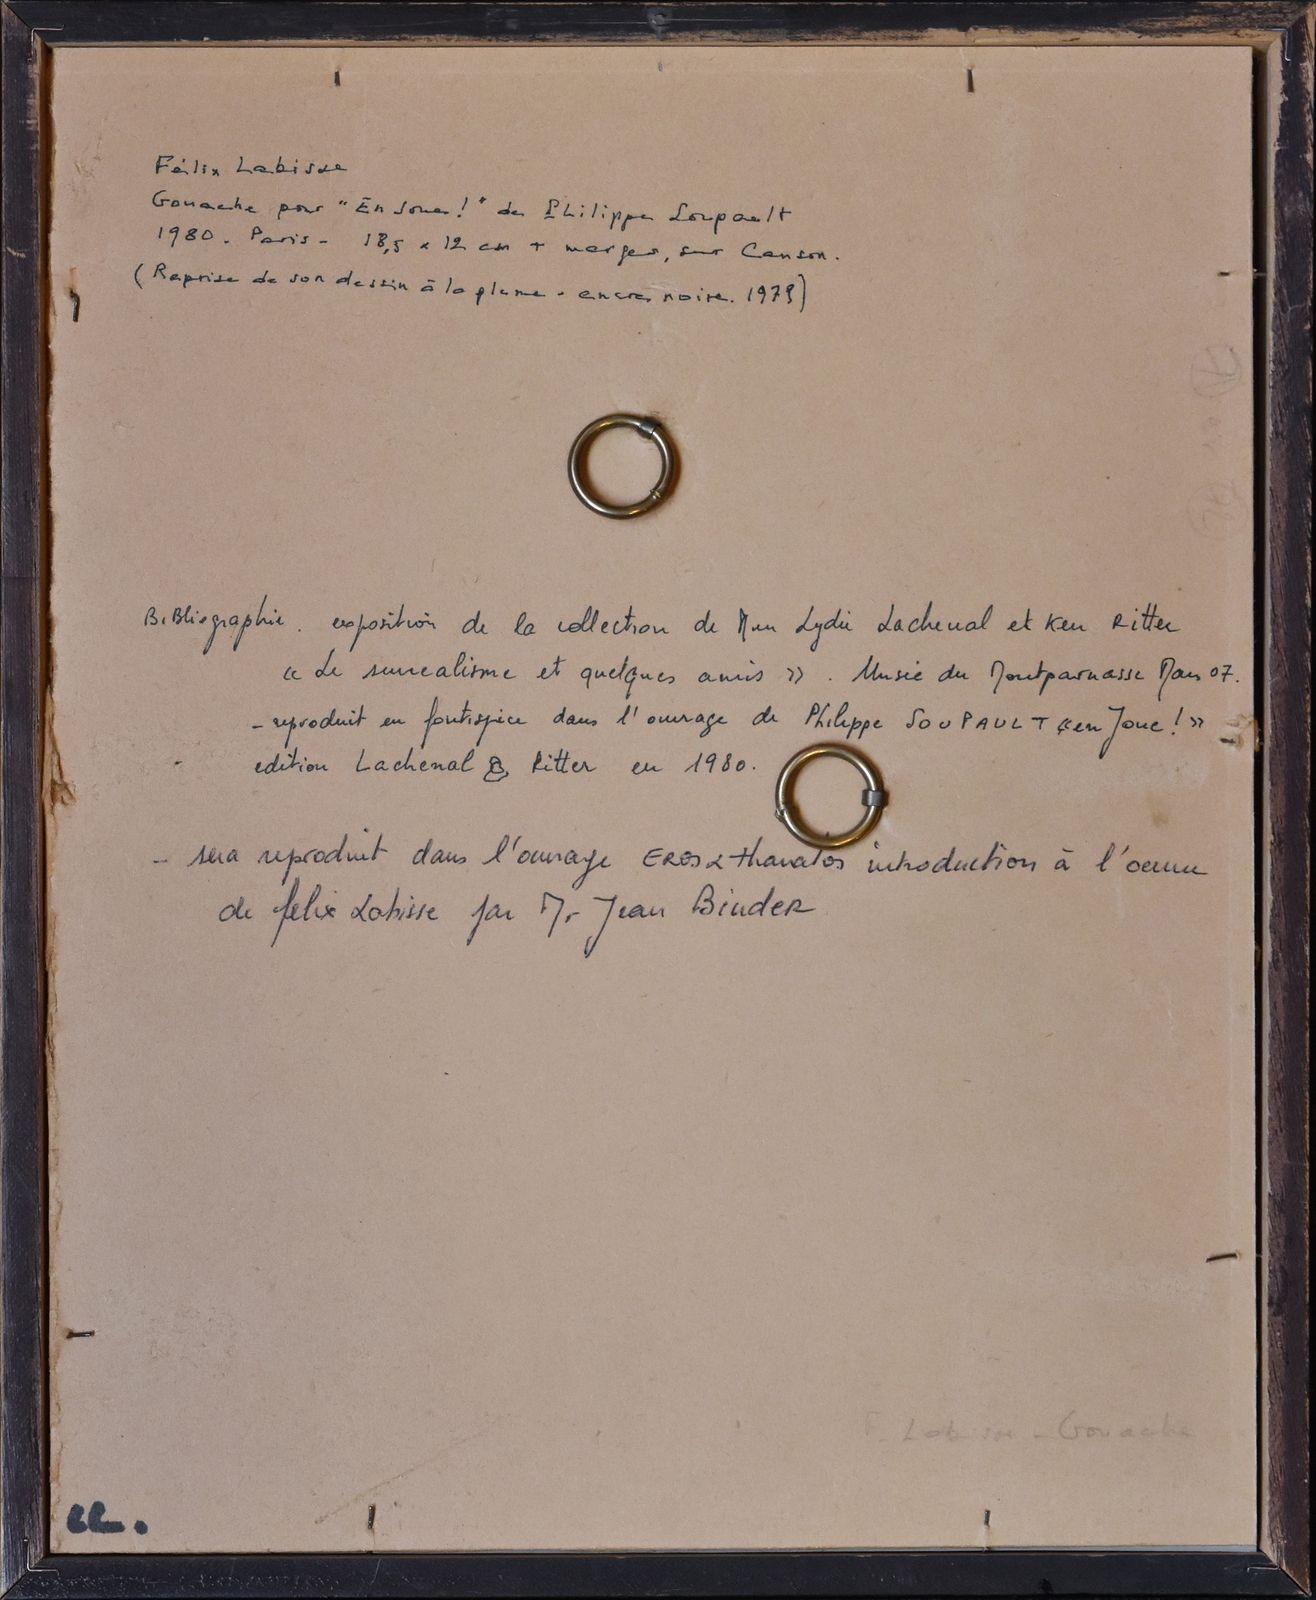 Félix Labisse
Gouache pour "En Joue!" de Philippe Soupault
1980. Paris - 18,5 x 12 cm + marges, sur Canson.
(Reprise de son dessin à la plume - encre noire. 1979)
BiBliographie. exposition de la collection de Lydie Lachenal et Ken Ritter
« Le surrealisme et quelques amis ». Musée du Montparnasse Mars 07.
- reproduit en fontispice dans l'ouvrage de Philippe SOUPAULT « en Joue! »
edition Lachenal & Ritter en 1980.
- sera reproduit dans l'ouvrage EROS & thanatos introduction à l'oeuvre
de felix Labisse par Mr Jean BindeR
F. Labisse - Gouache